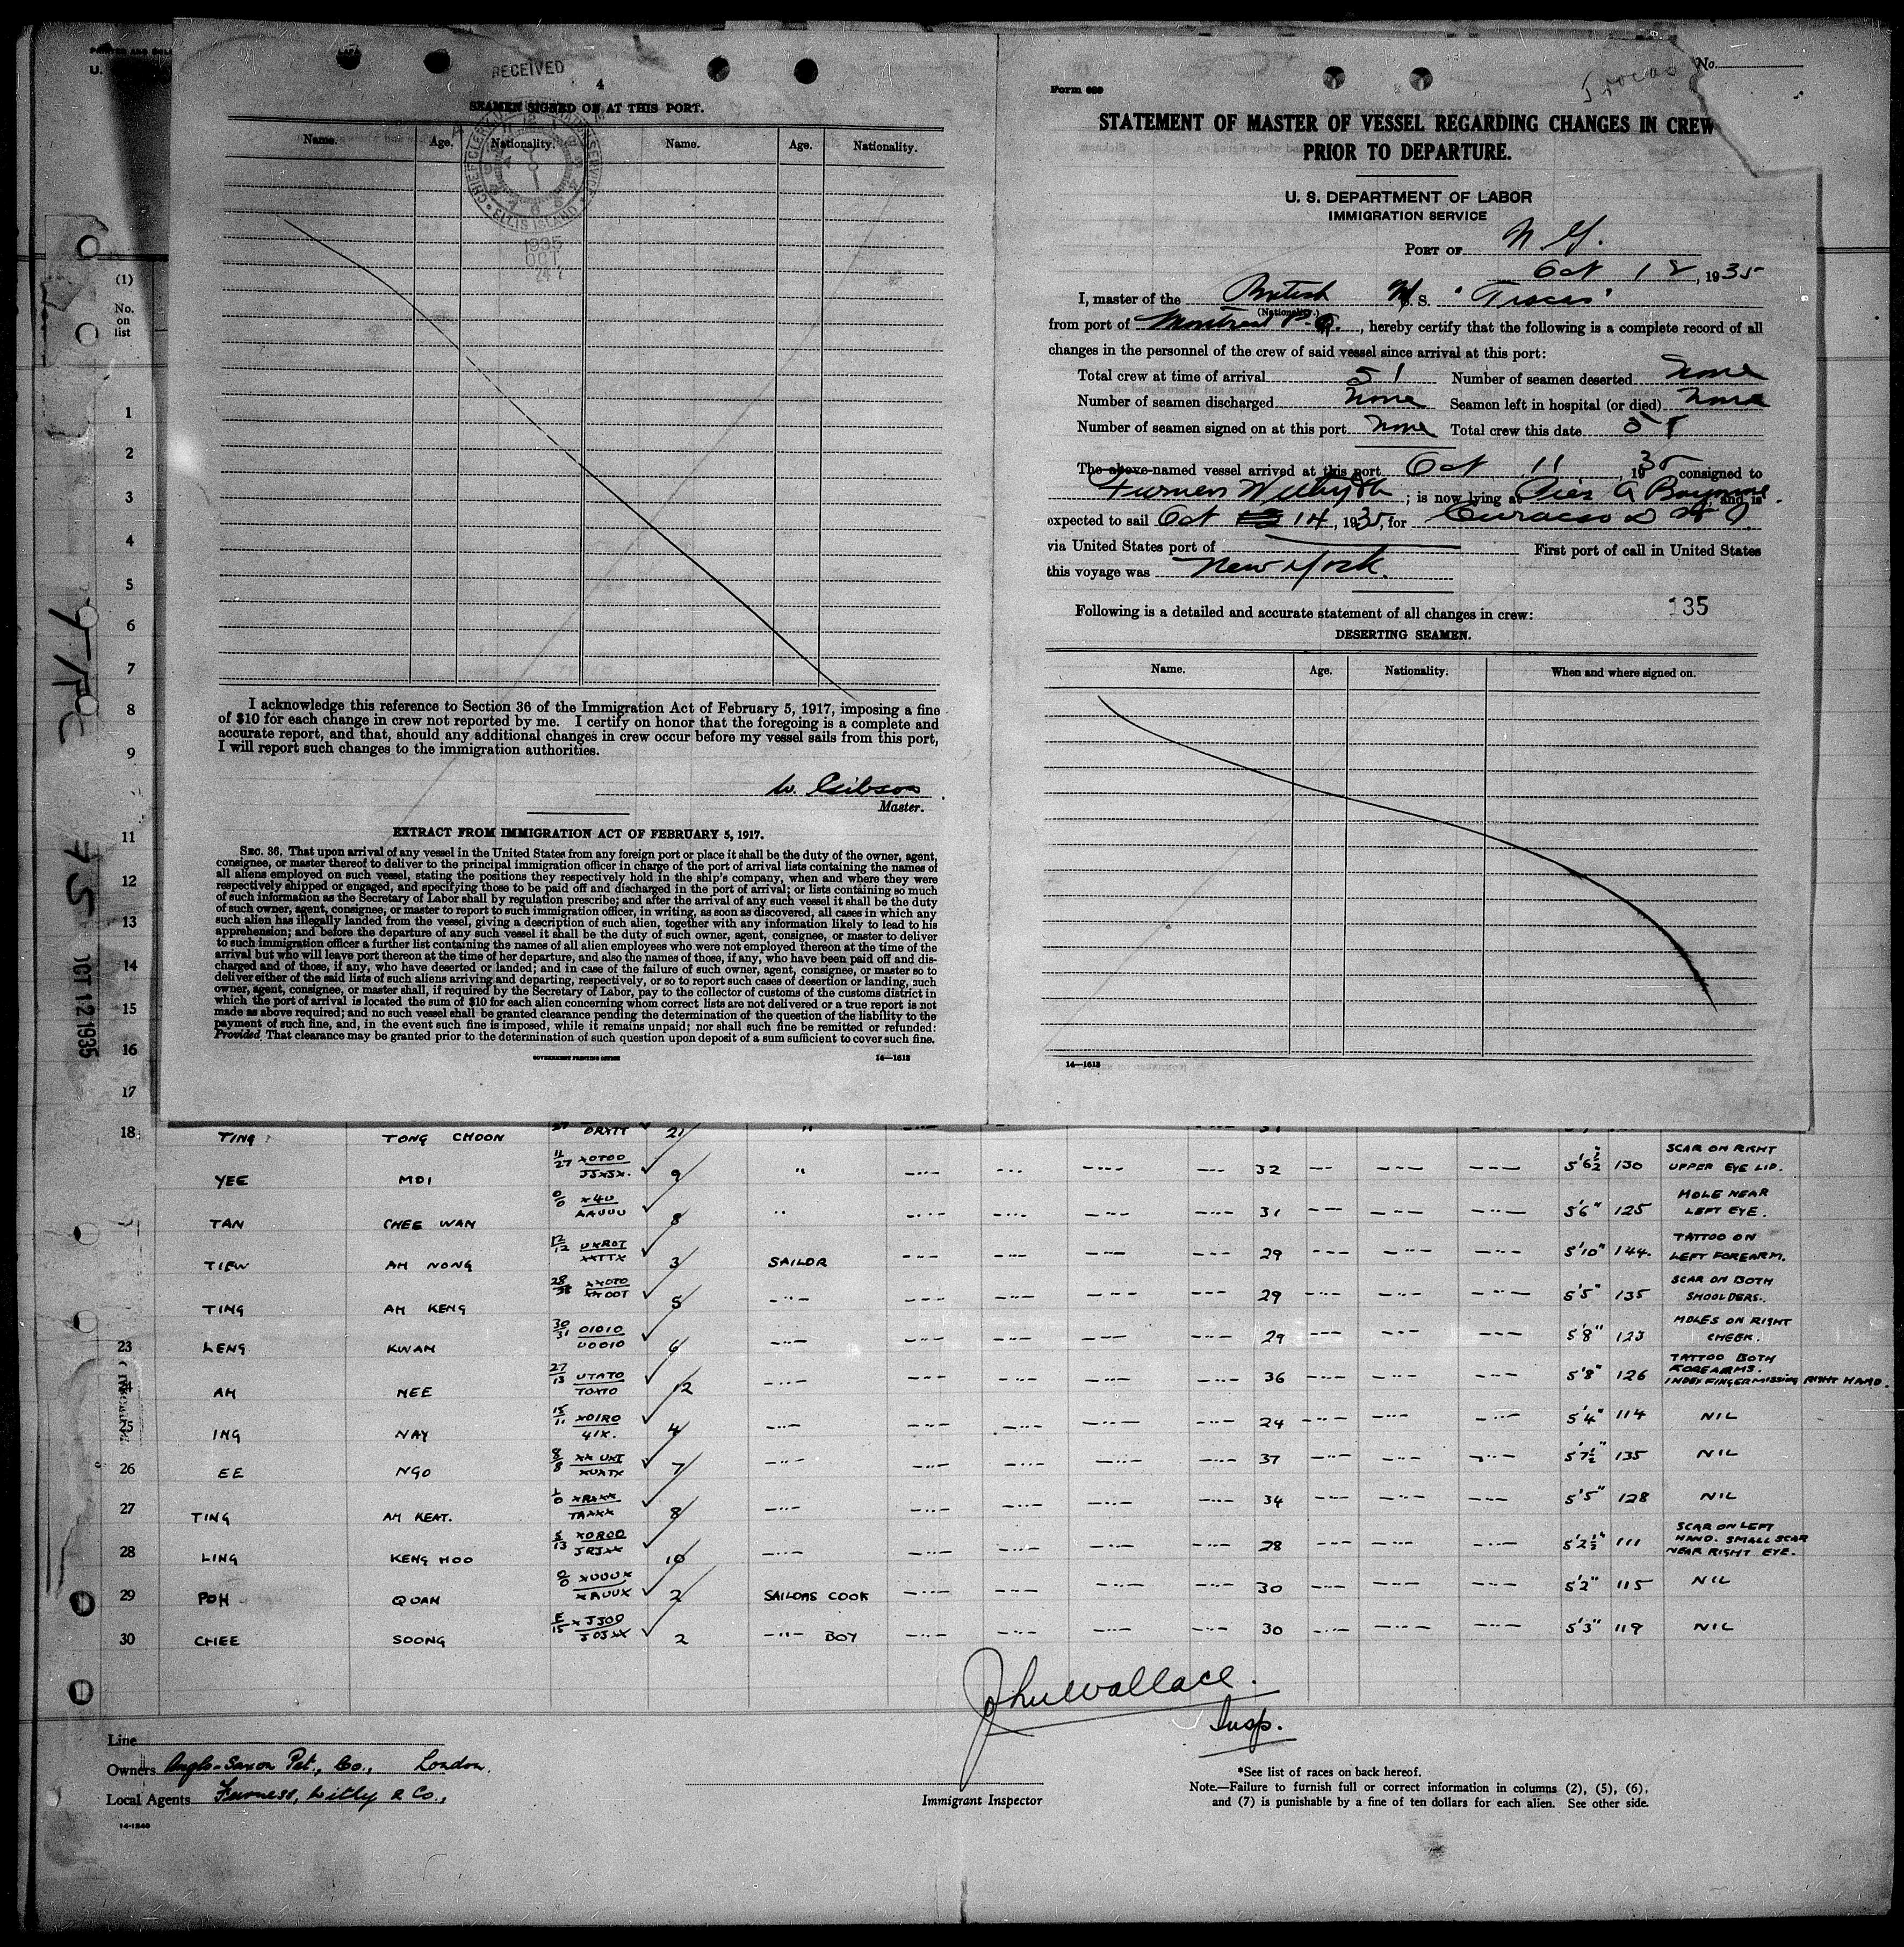 RECEIVED
4
SEAMEN SIGNED ON AT THIS PORT.
Name. Age. Nationality. Name. Age. Nationality.
ELLIS ISLAND
1935
OCT
I acknowledge this reference to Section 36 of the Immigration Act of February 5, 1917, imposing a fine
of $10 for each change in crew not reported by me. I certify on honor that the foregoing is a complete and
accurate report, and that, should any additional changes in crew occur before my vessel sails from this port,
I will report such changes to the immigration authorities.
W. Gibson
Master.
EXTRACT FROM IMMIGRATION ACT OF FEBRUARY 5, 1917.
SEC. 36. That upon arrival of any vessel in the United States from any foreign port or place it shall be the duty of the owner, agent,
consignee, or master thereof to deliver to the principal immigration officer in charge of the port of arrival lists containing the names of
all aliens employed on such vessel, stating the positions they respectively hold in the ship's company, when and where they were
respectively shipped or engaged, and specifying those to be paid off and discharged in the port of arrival; or lists containing so much
of such information as the Secretary of Labor shall by regulation prescribe; and after the arrival of any such vessel it shall be the duty
of such owner, agent, consignee, or master to report to such immigration officer, in writing, as soon as discovered, all cases in which any
such alien has illegally landed from the vessel, giving a description of such alien, together with any information likely to lead to his
apprehension; and before the departure of any such vessel it shall be the duty of such owner, agent, consignee, or master to deliver
to such immigration officer a further list containing the names of all alien employees who were not employed thereon at the time of the
arrival but who will leave port thereon at the time of her departure, and also the names of those, if any, who have been paid off and dis-
charged and of those, if any, who have deserted or landed; and in case of the failure of such owner, agent, consignee, or master so to
deliver either of the said lists of such aliens arriving and departing, respectively, or so to report such cases of desertion or landing, such
owner, agent, consignee, or master shall, if required by the Secretary of Labor, pay to the collector of customs of the customs district in
which the port of arrival is located the sum of $10 for each alien concerning whom correct lists are not delivered or a true report is not
made as above required; and no such vessel shall be granted clearance pending the determination of the question of the liability to the
payment of such fine, and, in the event such fine is imposed, while it remains unpaid; nor shall such fine be remitted or refunded:
Provided That clearance may be granted prior to the determination of such question upon deposit of a sum sufficient to cover such fine.
GOVERNMENT PRINTING OFFICE 14—1613
No.
Trocas
Form 689
STATEMENT OF MASTER OF VESSEL REGARDING CHANGES IN CREW
PRIOR TO DEPARTURE.
U. S. DEPARTMENT OF LABOR
IMMIGRATION SERVICE
PORT OF N. Y.
Oct 12, 1935
I, master of the British M. S. "Trocas"
(Nationality.)
from port of Montreal P.Q., hereby certify that the following is a complete record of all
changes in the personnel of the crew of said vessel since arrival at this port:
Total crew at time of arrival 51 Number of seamen deserted none
Number of seamen discharged none Seamen left in hospital (or died) none
Number of seamen signed on at this port none Total crew this date 51
The above-named vessel arrived at this port Oct 11, 1935 consigned to
Furness Withy &Co; is now lying at Pier A Bayonne, and is
expected to sail Oct 14, 1935, for Curacao D W I
via United States port of First port of call in United States
this voyage was New York.
Following is a detailed and accurate statement of all changes in crew: 135
DESERTING SEAMEN.
Name. Age. Nationality. When and where signed on.
14—1613
(1)
No.
on
list
1
2
3
4
5
6
7
8
9
11
12
13
14
15
16
17
OCT 12 1935
18 TING TONG CHOON 21 "
YEE MOI 9 " 32 5'6½ 130 SCAR ON RIGHT UPPER EYE LID.
TAN CHEE WAN 8 " 31 5'6" 125 MOLE NEAR LEFT EYE.
TIEW AH NONG 3 SAILOR 29 5'10" 144. TATTOO ON LEFT FOREARM.
TING AH KENG 5 29 5'5" 135 SCAR ON BOTH SHOOLDERS.
23 LENG KWAN 6 29 5'8" 123 MOLES ON RIGHT CHEEK.
24 AH NEE 12 36 5'8" 126 TATTOO BOTH FOREARMS. INDEX FINGER MISSING RIGHT HAND.
25 ING NAY 4 24 5'4" 114 NIL
26 EE NGO 7 37 5'7½" 135 NIL
27 TING AH KEAT. 8 34 5'5" 128 NIL
28 LING KENG HOO 10 28 5'2½" 111 SCAR ON LEFT HAND. SMALL SCAR NEAR RIGHT EYE.
29 POH QUAN 2 SAILORS COOK 30 5'2" 115 NIL
30 CHEE SOONG 2 -"- BOY 30 5'3" 119 NIL
John Wallace.
Insp.
Line
Owners Anglo-Saxon Pet., Co., London.
Local Agents Furness, Withy & Co.,
14-1240
Immigrant Inspector
*See list of races on back hereof.
Note.—Failure to furnish full or correct information in columns (2), (5), (6),
and (7) is punishable by a fine of ten dollars for each alien. See other side.